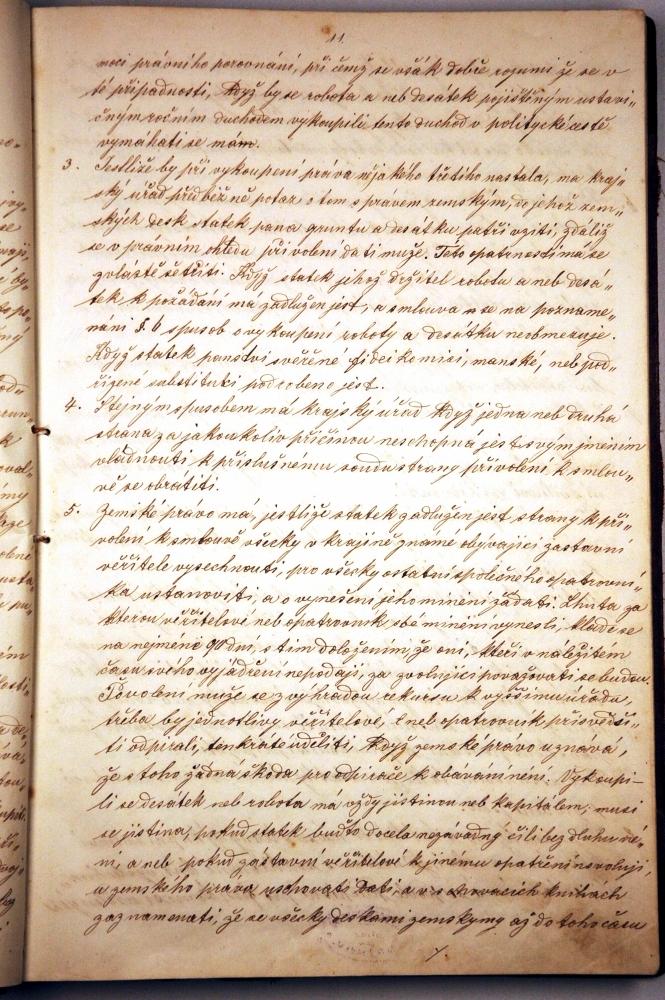 11.
moci právního porovnání, při čemž se však dobře rozumí že se v
té případnosti, když by se robota a neb desátek pojištěným ustavi„
čným ročním duchodem vykoupili tento duchod v politycké cestě
vymáhati se mám.
3. Jestliže by při vykoupení práva nějakého třetího nastala, ma kraj„
ský úřad předběžně potaz o tom s právem zemským, do jehož zem„
ských desk statek pana gruntu a desátku patří vzíti, zdaliž
se v právním ohledu přivolení dati muže. Tato opatrnost má se
zvláště šetřiti. Když statek jehož držitel robotu a neb desá„
tek k požádání ma zadlužen jest, a smlouva se na pozname„
nání §. 6 spusob o vykoupení roboty a desátku neobmezuje.
Když statek panství svěřené fideikomisí, manské, neb pod„
řízené substituti podrobeno jest.
4. Stejným spusobem má krajský úřad když jedna neb druhá
strana za jakoukoliv příčinou neschopná jest svym jměním
vládnouti k příslušnému soudu strany přivolení k smlou„
vě se obratiti.
5. Zemské pravo má, jestliže statek zadlužen jest strany k při„
volení k smlouvě všecky v krajině známé obývající zastavní
věřitele vyslechnouti, pro všecky ostatní společného opatrovní„
ka ustanoviti, a o vynešení jeho mínění žádati. Lhuta za
kterou věřitelové neb opatrovník své mínění vynesli, klade se
na nejméně 90 dní, s tím doložením, že oni, kteří v náležitém
času svého vyjádření nepodají, za zvolující považovati se budou.
Povolení muže se z výhradou rekursu k vyššímu úřadu,
třeba by jednotlivy věřitelové, neb opatrovník přisvědši„
ti odpírali, tenkráte uděliti, když zemské právo uznává,
že s toho žádná škoda pro odpírače k obávání není. Vykoupí–
li se desátek neb robota má vždy jistinou neb kapitálem; musí
se jistina, pokud statek buďto docela nezávadný čili bez dluhu ne„
ní, a neb pokud zástavní věřitelové k jinému opatření nesvolují,
u zemského práva uschovati dáti, a v schovacích knihách
zaznamenati, že se všecky deskami zemskymy až do toho času